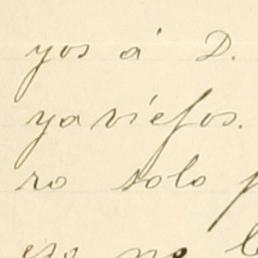 yos á D.
ya viejos.
ro solo
yo no